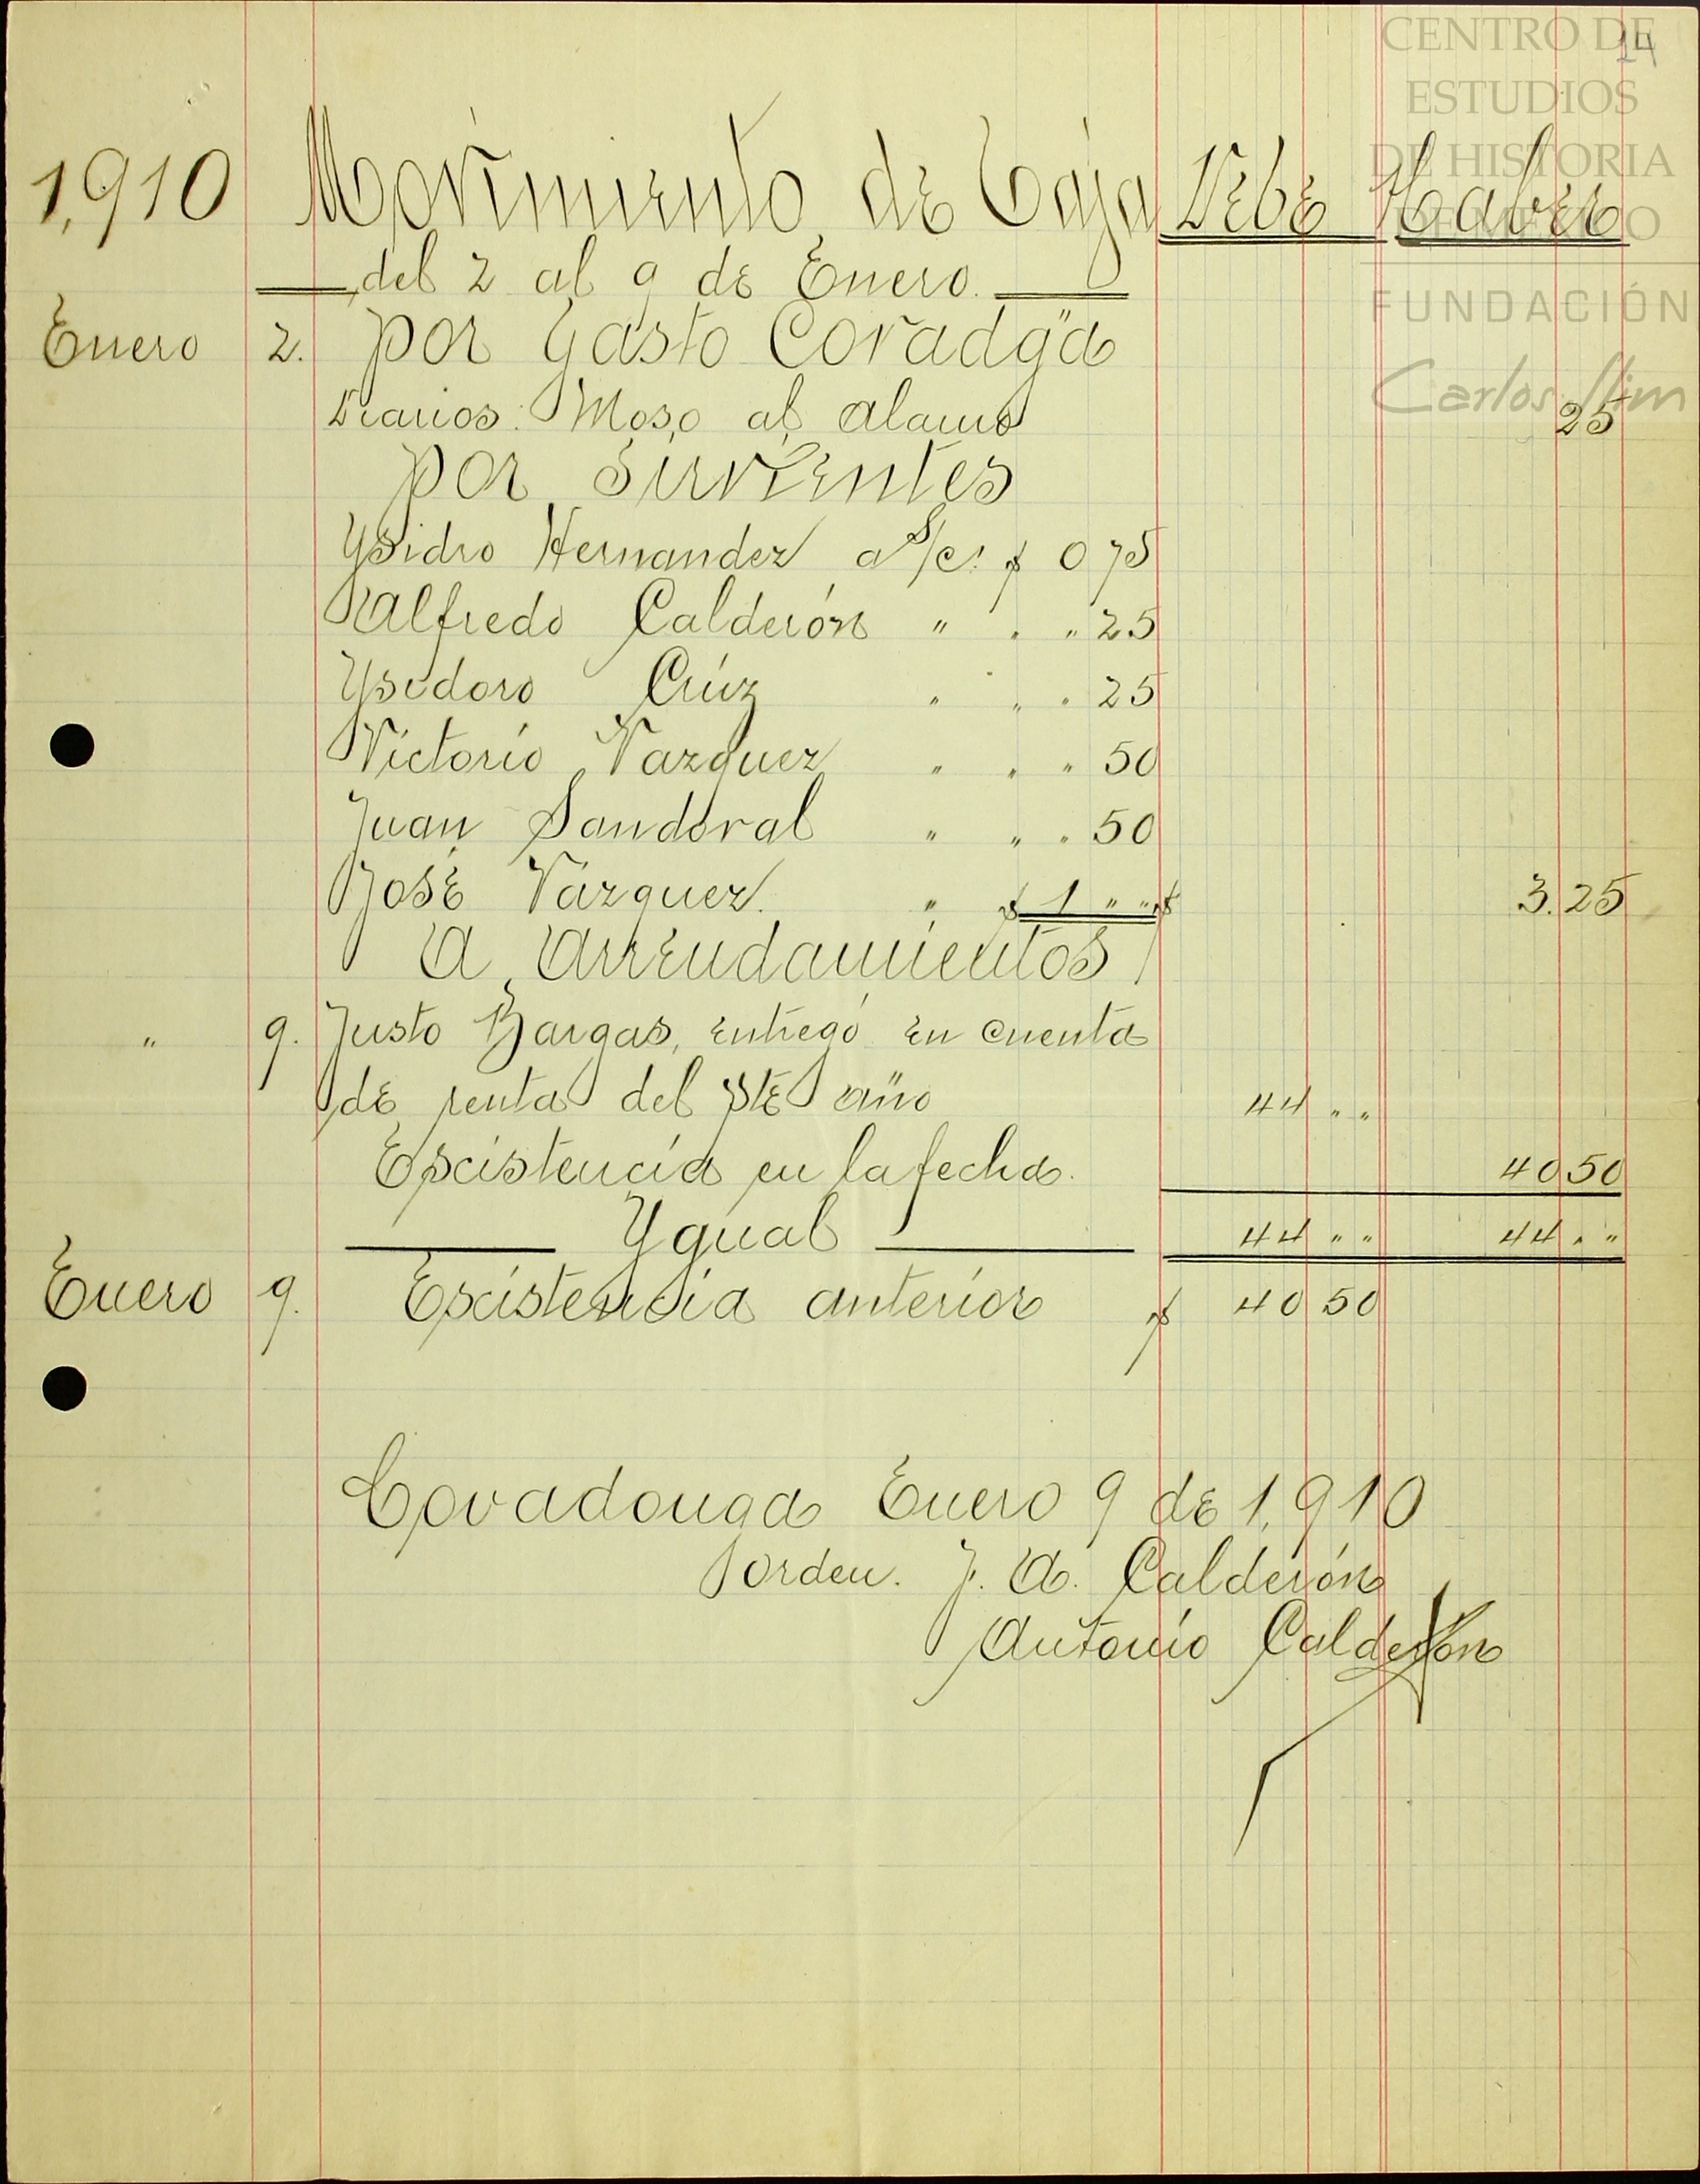 CENTRO DE
ESTUDIOS
DE HISTORIA
DE MÉXICO
FUNDACIÓN
Carlos Slim
1,910 Movimiento de Caja Debe Haber
del 2 al 9 de Enero.
Enero 2. por Gasto Covadga
Diarios. Moso al alamo 25
por Sirvientes
Ysidro Hernandez a S/c. $ 0 75
Alfredo Calderón " " " 25
Ysidoro Crúz " " " 25
Victorio Vazquez " " " 50
Juan Sandoval " " " 50
José Vazquez. " $ 1 " " $ 3.25
A Arrendamientos
" 9. Justo Bargas, entregó en cuenta
de renta del pte año 44 " "
Escistencia en la fecha. 40 50
Ygual 44 " " 44 " "
Enero 9. Escistencia anterior $ 40 50
Covadonga Enero 9 de 1,910
P orden. J. A. Calderón
Antonio Calderón